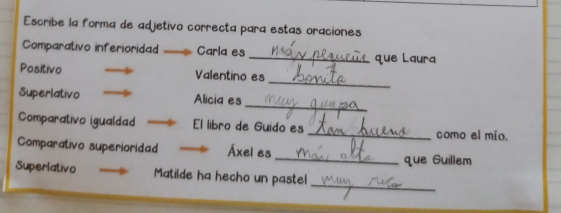 Escribe la forma de adjetivo correcta para estas oraciones
Comparativo inferioridad Carla es más pequeñs que Laura
Positivo Valentino es bonito
Superlativo Alicia es muy guapa
Comparativo igualdad El libro de Guido es tan bueno como el mío.
Comparativo superioridad Áxel es más alto que Guillem
Superlativo Matilde ha hecho un pastel muy rico